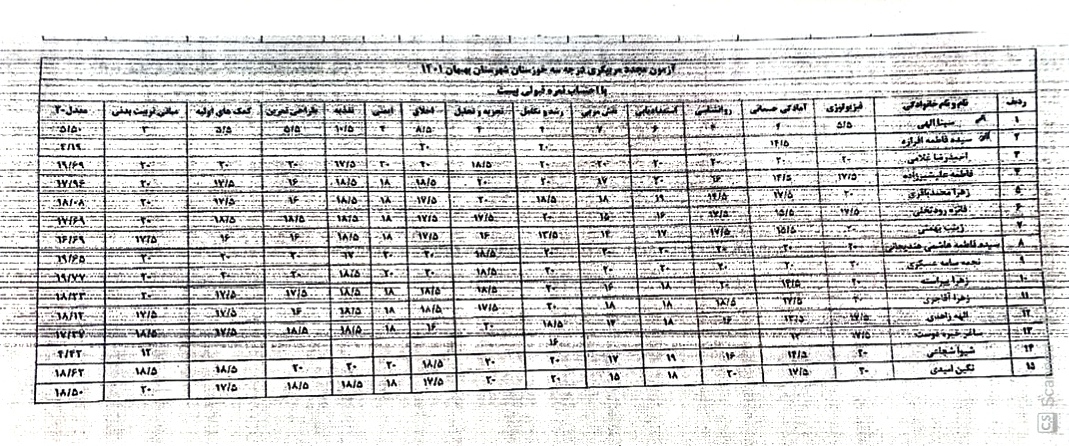 آزمون مجدد مربیگری درجه سه خوزستان شهرستان بهبهان ۱۴۰۱
با احتساب نمره قبولی بیست
ردیف نام و نام خانوادگی فیزیولوژی آمادگی جسمانی روانشناسی استعدادیابی نقش مربی رشد و تکامل تجزیه و تحلیل اخلاق ایمنی تغذیه طراحی تمرین کمک های اولیه مبانی تربیت بدنی معدل ۲۰
۱ سینا الهی ۵/۵ ۸/۵ ۱۰/۵ ۵/۵ ۵/۵ ۵/۵۰
۲ سیده فاطمه افرازه ۱۴/۵ ۲۰ ۲۰
۳ احمدرضا غلامی ۲۰ ۲۰ ۲۰ ۲۰ ۲۰ ۲۰ ۱۸/۵ ۲۰ ۲۰ ۱۷/۵ ۲۰ ۲۰ ۲۰ ۱۹/۶۹
۴ فاطمه ۱۷/۵ ۱۴/۵ ۱۶ ۲۰ ۱۷ ۲۰ ۲۰ ۱۸/۵ ۱۸ ۱۸/۵ ۱۶ ۱۷/۵ ۲۰ ۱۷/۹۶
۵ زهرا محمدباقری ۲۰ ۱۷/۵ ۱۹ ۱۸ ۱۸/۵ ۲۰ ۱۷/۵ ۱۸ ۱۸/۵ ۱۶ ۱۷/۵ ۲۰ ۱۸/۰۸
۶ فائزه ۱۷/۵ ۱۵/۵ ۱۷/۵ ۱۶ ۱۵ ۲۰ ۱۷/۵ ۱۷/۵ ۱۸ ۱۸/۵ ۱۸/۵ ۱۸/۵ ۲۰ ۱۷/۶۹
۷ زینب بهمئی ۲۰ ۱۵/۵ ۱۷/۵ ۱۷ ۱۴ ۱۳/۵ ۱۶ ۱۷/۵ ۱۸ ۱۸/۵ ۱۶ ۱۶ ۱۷/۵ ۱۶/۶۹
۸ سیده فاطمه هاشمی ۲۰ ۲۰ ۲۰ ۲۰ ۲۰ ۲۰ ۱۸/۵ ۲۰ ۲۰ ۱۷ ۲۰ ۲۰ ۲۰ ۱۹/۶۵
۹ نجمه سامه عسگری ۲۰ ۲۰ ۲۰ ۲۰ ۲۰ ۲۰ ۱۸/۵ ۲۰ ۲۰ ۱۸/۵ ۲۰ ۲۰ ۲۰ ۱۹/۷۷
۱۰ زهرا پیراسته ۲۰ ۱۴/۵ ۲۰ ۱۸ ۱۶ ۲۰ ۱۸/۵ ۱۸/۵ ۱۸ ۱۸/۵ ۱۷/۵ ۱۷/۵ ۲۰ ۱۸/۲۳
۱۱ زهرا آقاجری ۲۰ ۱۷/۵ ۱۸/۵ ۱۸ ۱۸ ۲۰ ۱۷/۵ ۱۸/۵ ۱۸ ۱۸/۵ ۱۶ ۱۷/۵ ۱۷/۵ ۱۸/۱۲
۱۲ الهه زاهدی ۱۷/۵ ۱۳/۵ ۱۶ ۱۸ ۱۷ ۱۸/۵ ۲۰ ۱۶ ۱۸ ۱۸/۵ ۱۸/۵ ۱۷/۵ ۱۸/۵ ۱۷/۲۷
۱۳ ۱۷/۵ ۱۲ ۱۶ ۱۲ ۴/۴۲
۱۴ شیوا شجاعی ۲۰ ۱۴/۵ ۱۶ ۱۹ ۱۷ ۲۰ ۲۰ ۱۸/۵ ۲۰ ۲۰ ۲۰ ۱۸/۵ ۱۸/۵ ۱۸/۶۲
۱۵ نگین امیدی ۲۰ ۱۷/۵ ۲۰ ۱۸ ۱۵ ۲۰ ۲۰ ۱۷/۵ ۱۸ ۱۸/۵ ۱۸/۵ ۱۷/۵ ۲۰ ۱۸/۵۰
CS